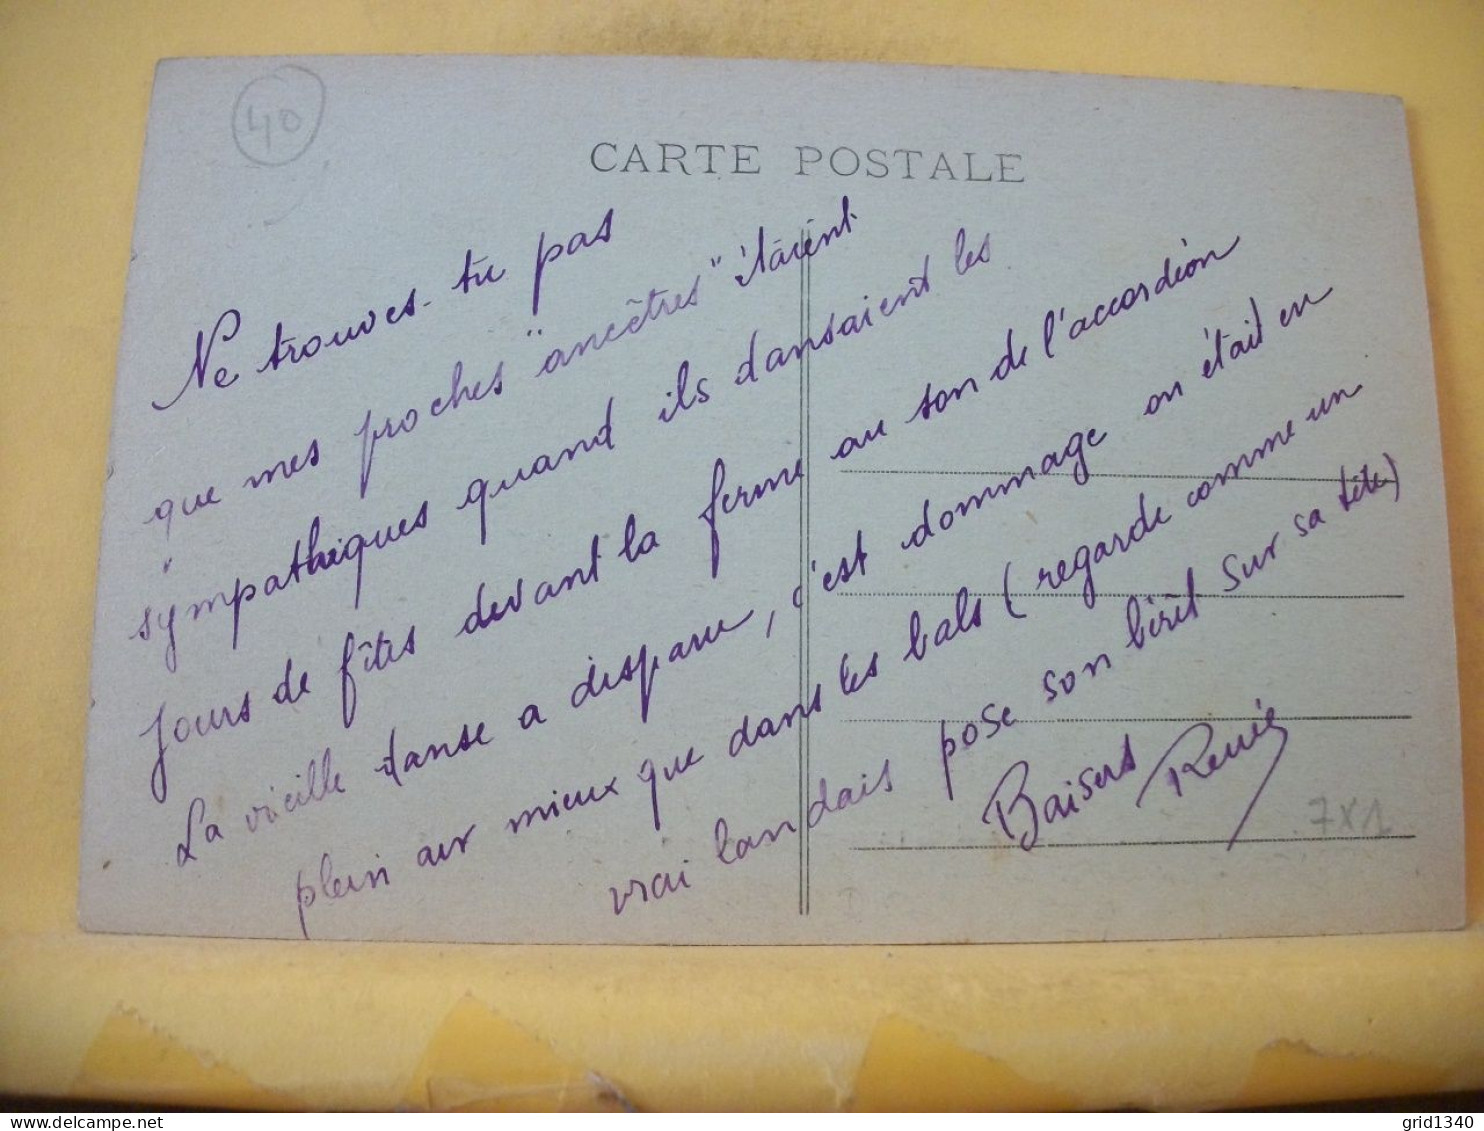 40
CARTE POSTALE
Ne trouves-tu pas
que mes proches "ancêtres" étaient
"sympathiques quand ils dansaient les
jours de fêtes devant la ferme au son de l'accordéon
La vieille danse a disparu, c'est dommage on était en
plein air mieux que dans les bals (regarde comme un
vrai landais pose son béret sur sa tête)
Baisers Renée
7X1
grid1340